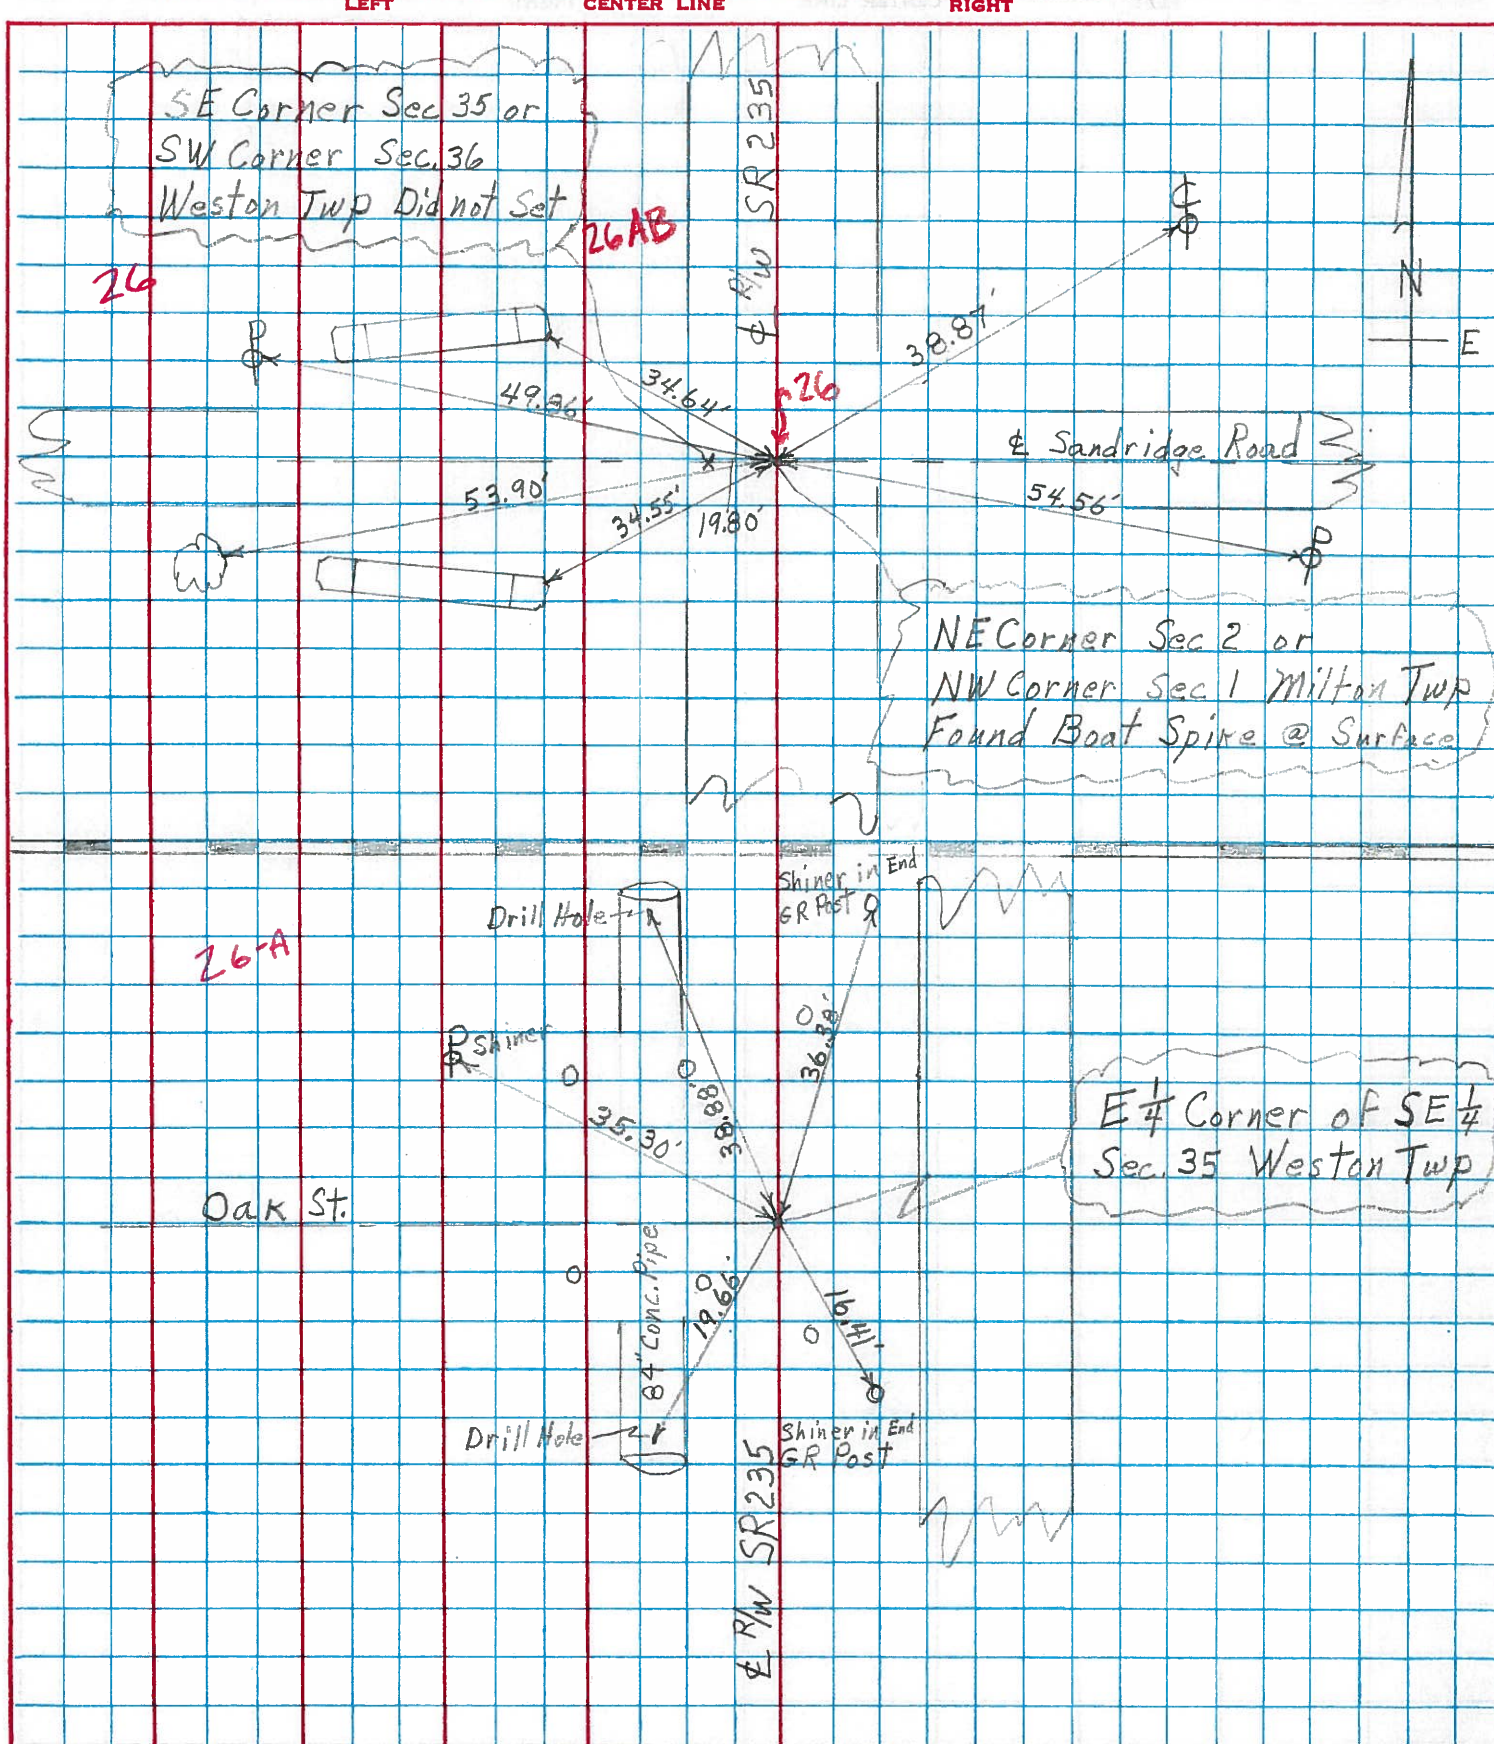 LEFT
CENTER LINE
RIGHT
SE Corner Sec 35 or
SW Corner Sec. 36
Weston Twp Did not Set
26AB
26
℄ R/W SR 235
N
E
P
38.87'
34.64'
26
℄ Sandridge Road
53.90'
34.55'
19.80'
54.56'
P
NE Corner Sec 2 or
NW Corner Sec 1 Milton Twp
Found Boat Spike @ Surface
Shiner in End
GR Post
Drill Hole
26-A
P Shiner
36.38'
38.88'
35.30'
E 1/4 Corner of SE 1/4
Sec. 35 Weston Twp
Oak St.
84" Conc. Pipe
19.66'
16.41'
Drill Hole
Shiner in End
GR Post
℄ R/W SR 235